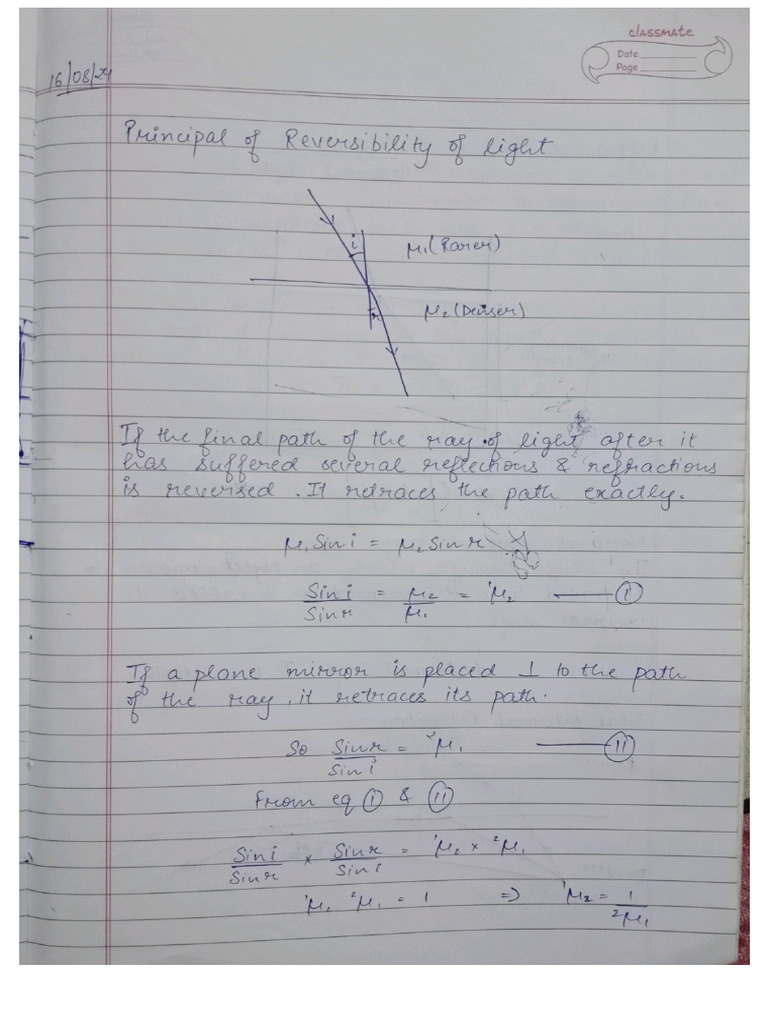 classmate
Date
Page
16/08/24
Principal of Reversibility of light
i
μ₁(Rarer)
r
μ₂(Denser)
If the final path of the ray of light after it
has suffered several reflections & refractions
is reversed. It retraces the path exactly.
μ₁ Sin i = μ₂ Sin r
Sin i / Sin r = μ₂ / μ₁ = ¹μ₂ — I
If a plane mirror is placed ⊥ to the path
of the ray, it retraces its path.
So Sin r / Sin i = ²μ₁ — II
From eq I & II
Sin i / Sin r × Sin r / Sin i = ¹μ₂ × ²μ₁
¹μ₂ ²μ₁ = 1 ⇒ ¹μ₂ = 1 / ²μ₁